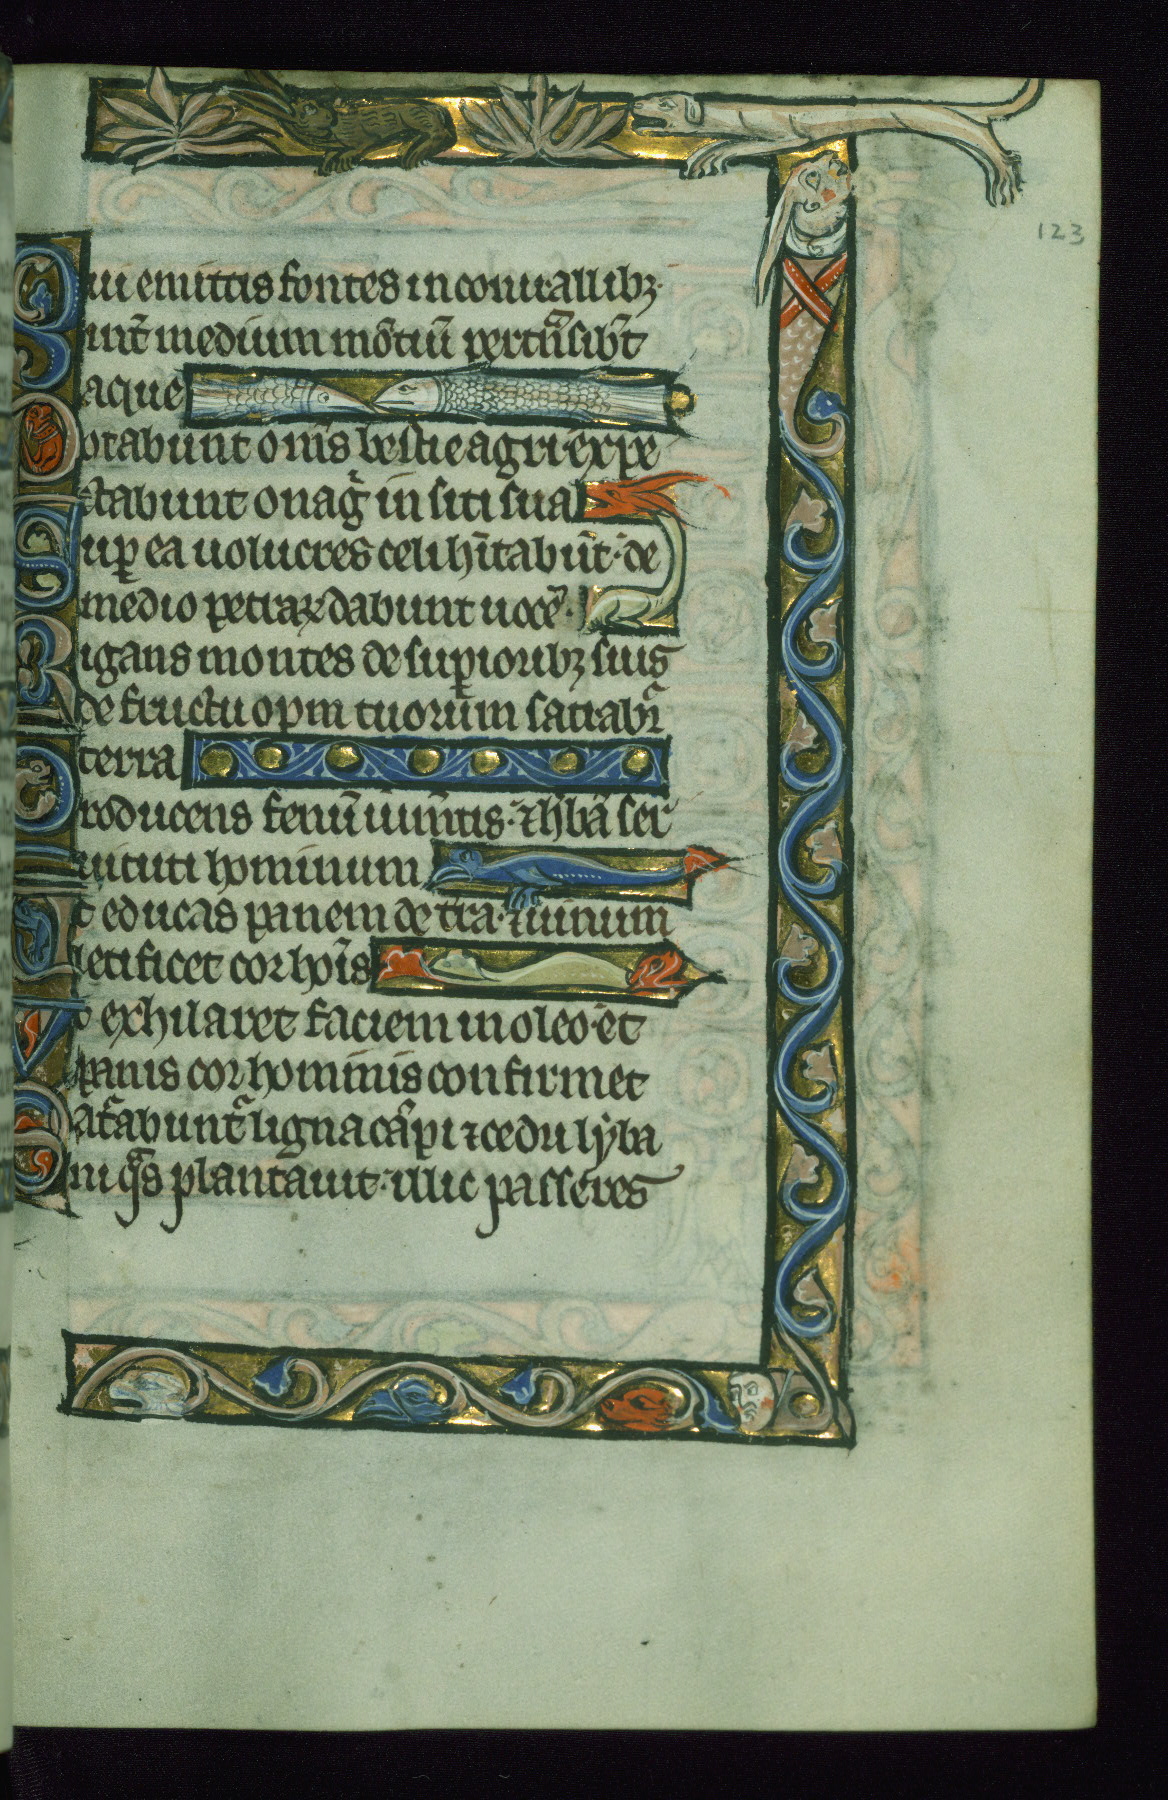 123
Qui emittis fontes in conuallibꝫ·
int̄ medium mōtiū ꝑtn̄sibt̄
aque
Potabunt om̄s bestie agri·expe
ctabunt onag̑ in siti sua
Suꝑ ea uolucres celi hītabūt·de
medio petraꝝ dabunt uocē·
Rigans montes de suꝑioribꝫ suis
de fructu opm tuorum satiabr̄
terra
Producens fenū ium̄tis·⁊ hʼbā ser
uituti hominum
Et educas panem de tʼra·⁊ uinum
letificet cor hoīs
Vt exhilaret faciem in oleo·et
panis cor hominis confirmet
Satʼabuntʼ ligna cāpi ⁊ cedri lyba
ni q̄s plantauit·illic passeres